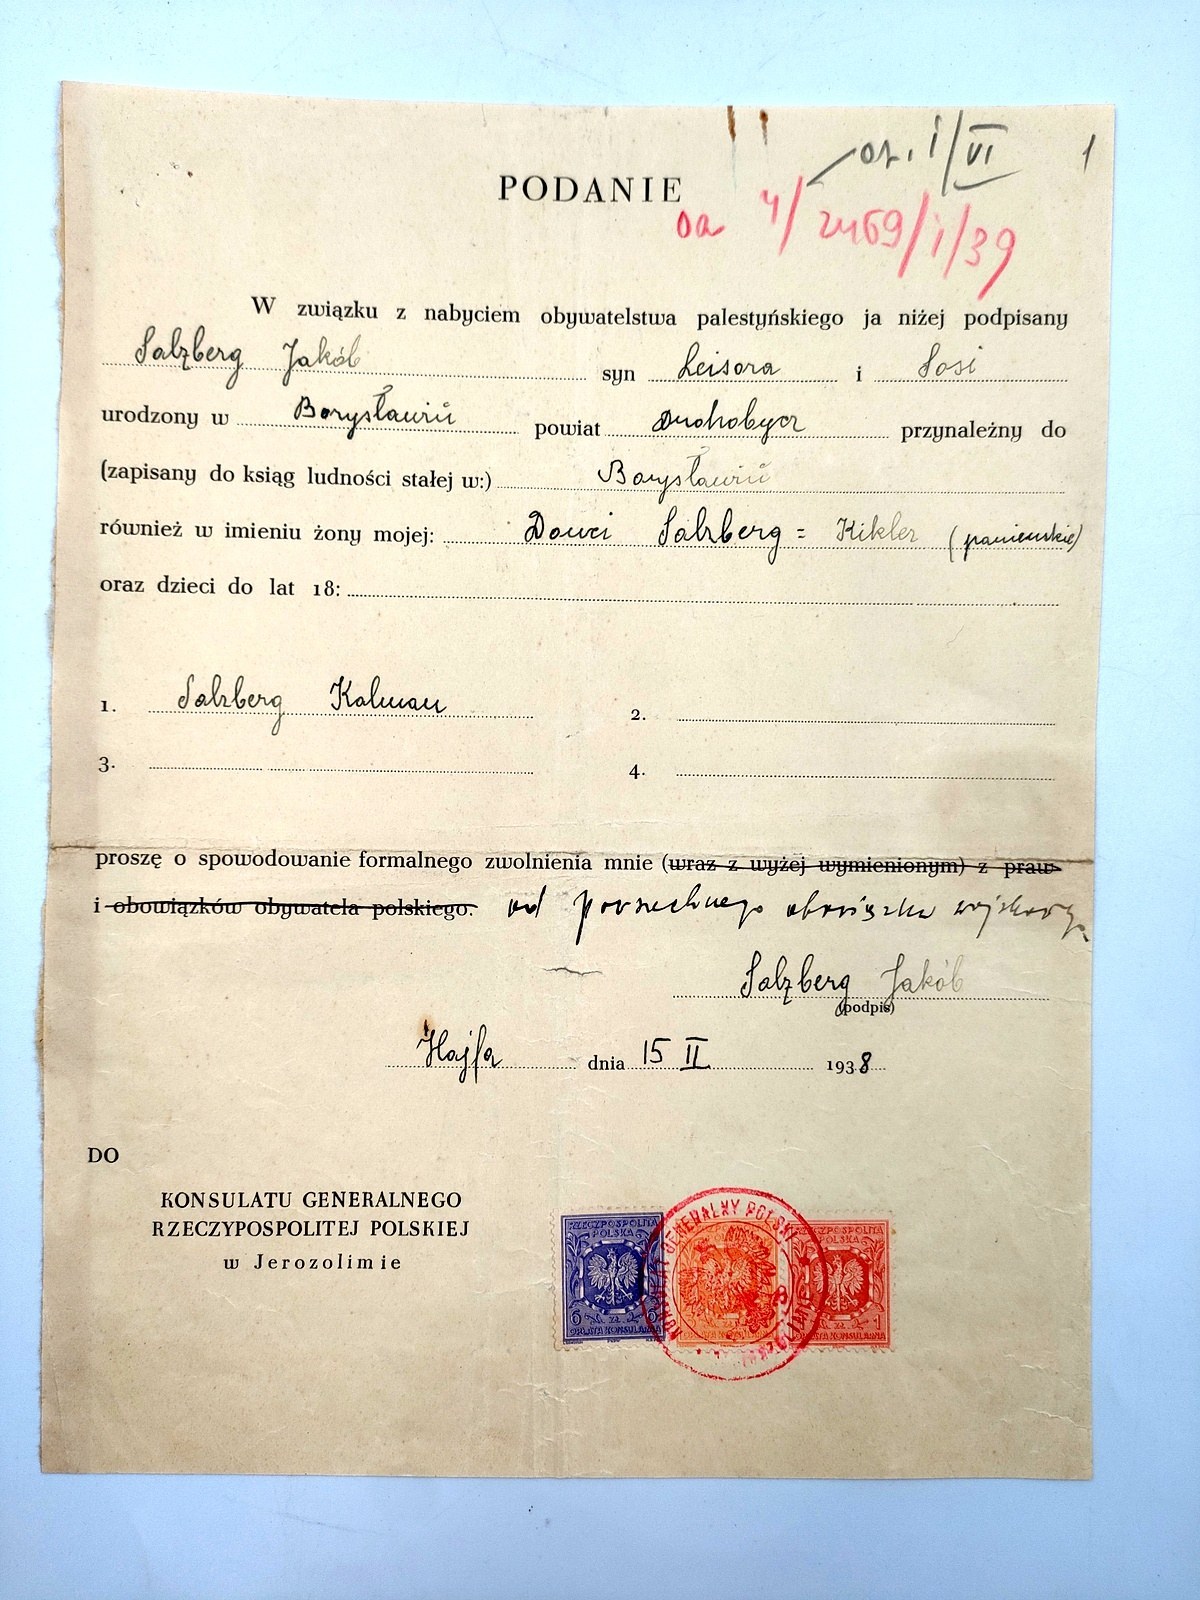 oz. i/VI 1
PODANIE
oa 4/2469/i/39
W związku z nabyciem obywatelstwa palestyńskiego ja niżej podpisany
Salzberg Jakób syn Leisora i Sosi
urodzony w Borysławiu powiat Drohobycz przynależny do
(zapisany do ksiąg ludności stałej w:) Borysławiu
również w imieniu żony mojej: Dowci Salzberg = Kikler (panieńskie)
oraz dzieci do lat 18:
1. Salzberg Kalman 2.
3. 4.
proszę o spowodowanie formalnego zwolnienia mnie (wraz z wyżej wymienionym) z praw
i obowiązków obywatela polskiego. od powszechnego obowiązku wojskowego
Salzberg Jakób
(podpis)
Hajfa dnia 15 II 1938
DO
KONSULATU GENERALNEGO
RZECZYPOSPOLITEJ POLSKIEJ
w Jerozolimie
RZECZPOSPOLITA POLSKA
6 ZŁ 6
OPŁATA KONSULARNA
KONSULAT GENERALNY POLSKI
RZECZPOSPOLITA POLSKA
ZŁ 1
OPŁATA KONSULARNA